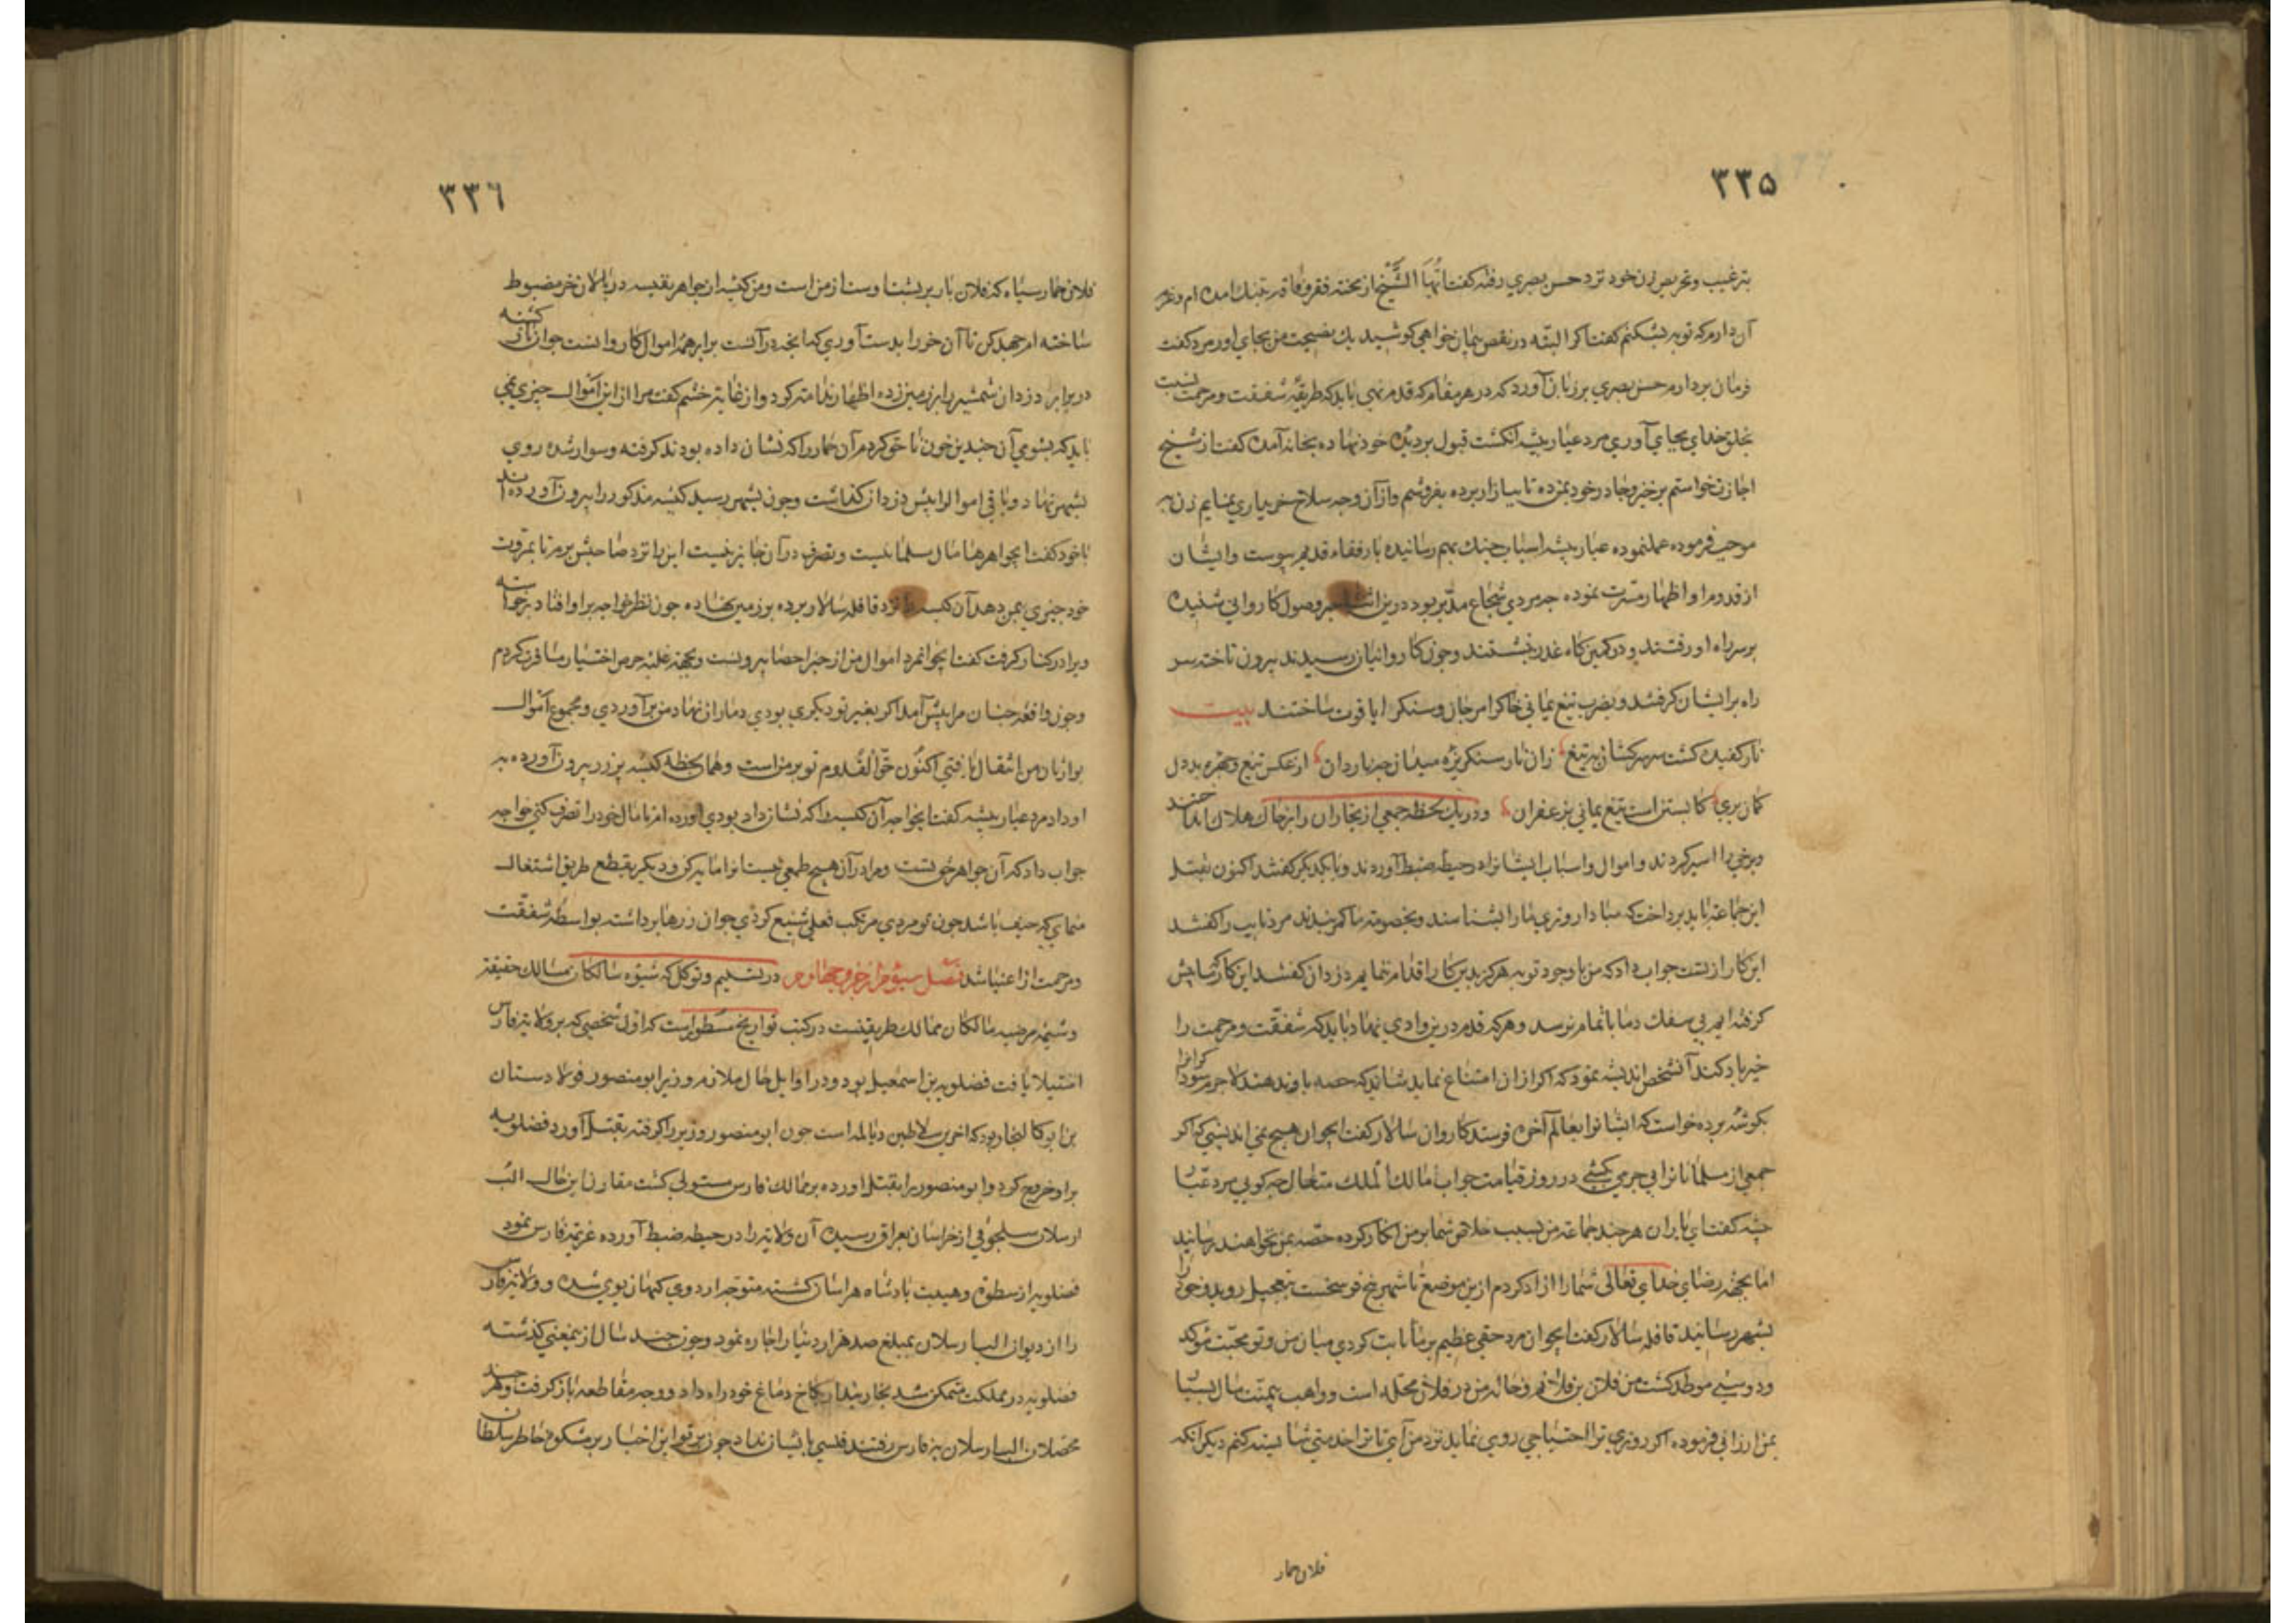 ٣٣۵
بترغیب و تحریص زن خود نزد حسن بصری رفته کفت ایّها الشّیخ از محنت فقر و فاقه بتنک امده ام و عزم
آن دارم که توبه بشکنم کفت اکر البتّه در نقض پیمان خواهی کوشید یک نصیحت من بجای اور مرد کفت
فرمان بردارم حسن بصری بر زبان آورد که در هر مقام که قدم نهی باید که طریقهٔ شفقت و مرحمت نسبت
بخلق خدای بجای آوری مرد عیار پیشه انکشت قبول بر دیده خود نهاده بخانه آمده کفت از شیخ
اجازت خواستم برخیز و چادر خود بمن ده تا ببازار برده بفروشم و از آن وجه سلاح خریداری نمایم زن به
موجب فرموده عمل نموده عیار پیشه اسباب جنک بهم رسانیده با رفقاء قدیم پیوست و ایشان
از قدوم او اظهار مسرت نموده چه مردی شجاع مدبّر بود درین اثنا خبر وصول کاروانی شنیده
بر سر راه او رفتند و در کمین کاه غدر نشستند و چون کاروانیان رسیدند بیرون تاخته سر
راه بر ایشان کرفتند و بضرب تیغ یمانی خاک را مرجان و سنک را یاقوت ساختند بیت
نار کفیده کشت سر سرکشان بتیغ زان نار سنکریزه میدان چو ناردان از عکس تیغ و چهره بددل
کمان بری کابستن است تیغ یمانی بزعفران و در یک لحظه جمعی از تجاران را بر خاک هلاک انداختند
و برخی را اسیر کردند و اموال و اسباب ایشانرا در حیطه ضبط آوردند و با یکدیکر کفتند اکنون بقتل
این جماعت باید پرداخت که مبادا روزی ما را بشناسند و بخصومت ما کمر بندند مرد تایب را کفتند
این کار از تست جواب داد که من با وجود توبه هرکز بدین کار اقدام ننمایم دزدان کفتند این کار که ما پیش
کرفته ایم بی سفک دما باتمام نرسد و هر که قدم درین وادی نهاد باید که شفقت و مرحمت را
خیر باد کند آنشخص اندیشه نمود که اکر از ان امتناع نماید شاید که حصه باو ندهند لاجرم سوداکرانرا
بکوشه برده خواست که ایشانرا بعالم آخرت فرستد کاروان سالار کفت ایجوان هیچ نمی اندیشی که اکر
جمعی از مسلمانانرا بی جرمی کشی در روز قیامت جواب مالک الملک متعال چه کویی مرد عیّار
پیشه کفت ای یاران هر چند جماعت من بسبب خلاص شما بر من انکار کرده حصّه بمن نخواهند رسانید
اما بجهة رضای خدای تعالی شما را ازاد کردم ازین موضع تا شهر پنج فرسخست بتعجیل روید و خود را
بشهر رسانید قافله سالار کفت ایجوان مرد حقی عظیم بر ما ثابت کردی میان من و تو محبّت موکد
و دوستی موطّد کشت من فلان بن فلانم و خانه من در فلان محله است و واهب بیمنّت مال بسیار
بمن ارزانی فرموده اکر روزی ترا احتیاجی روی نماید نزد من آی تا ترا خدمتی شایسته کنم دیکر انکه
فلان حمار
٣٣٦
فلان حمار سیاه که فلان بار بر پشت اوست از من است و من کیسه از جواهر نفیسه در پالان خر مضبوط
ساخته ام جهد کن تا آن خر را بدست آوری که انچه در آنست برابر همه اموال کاروانست جوان بازکشته
در برابر دزدان شمشیر را بر زمین زده اظهار ندامت کرد و از غایت خشم کفت مرا از این اموال چیزی نمی
باید که بشومی آن چندین خون ناحق کردم آن حمار را که نشان داده بودند کرفته و سوار شده روی
بشهر نهاد و باقی اموال را پیش دزدان کذاشت و چون بشهر رسید کیسه مذکور را بیرون آوردند
با خود کفت اینجواهرها مال مسلمانیست و تصرف در آن جایز نیست این را نزد صاحبش برم تا بمروت
خود چیزی بمن دهد آن کیسه را نزد قافله سالار برده بر زمین نهاده چون نظر خواجه بر او افتاد برخواسته
ویرا در کنار کرفت کفت ایجوانمرد اموال من از حیز احصا بیرونست و بجهة غلبه حرص اختیار مسافرت کردم
و چون واقعه چنان مرا پیش آمد اکر بغیر تو دیکری بودی دمار از نهاد من برآوردی و مجموع اموال
بوارثان من انتقال یافتی اکنون حقّ القدوم تو بر من است و همان لحظه کیسه پر زر بیرون آورده به
او داد مرد عیار پیشه کفت ایخواجه آن کیسه را که نشان داده بودی اورده ام تا مال خود را تصرف کنی خواجه
جواب داد که آن جواهر حق تست و مرا در آن هیچ طمعی نیست اما باید که من بعد بقطع طریق اشتغال
ننمایی که حیف باشد چون تو مردی مرتکب فعلی شنیع کردی جوان زرها برداشته بواسطه شفقّت
و مرحمت از اغنیا شد فصل سیوم از جزو چهارم در تسلیم و توکل که شیوه سالکان مسالک حقیقت
و شیمه مرضیه مالکان ممالک طریقتست در کتب تواریخ مسطور است که اوّل شخصی که بر ولایت فارس
استیلا یافت فضلویه بن اسمعیل بود و در اوایل حال ملازم وزیر ابو منصور فولادستان
بن ابو کالنجار بود که اخرین سلاطین دیالمه است چون ابو منصور وزیر را کرفته بقتل آورد فضلویه
بر او خروج کرد و ابو منصور را بقتل اورده بر ممالک فارس مستولی کشت مقارن این حال الب
ارسلان سلجوقی از خراسان بعراق رسیده آن ولایت را در حیطه ضبط آورده عزیمت فارس نمود
فضلویه از سطوت و هیبت پادشاه هراسان کشته متوجه اردوی کیهان پوی شده و ولایت فارس
را از دیوان الب ارسلان بمبلغ صد هزار دینار اجاره نمود و چون چند سال از ینمعنی کذشته
فضلویه در مملکت متمکن شد بخار پندار بکاخ دماغ خود راه داد و وجه مقاطعه باز کرفت و هر چند
محصلان الب ارسلان بفارس رفتند فلسی بایشان نداد چون پرتو این اخبار بر مشکوة خاطر سلطان